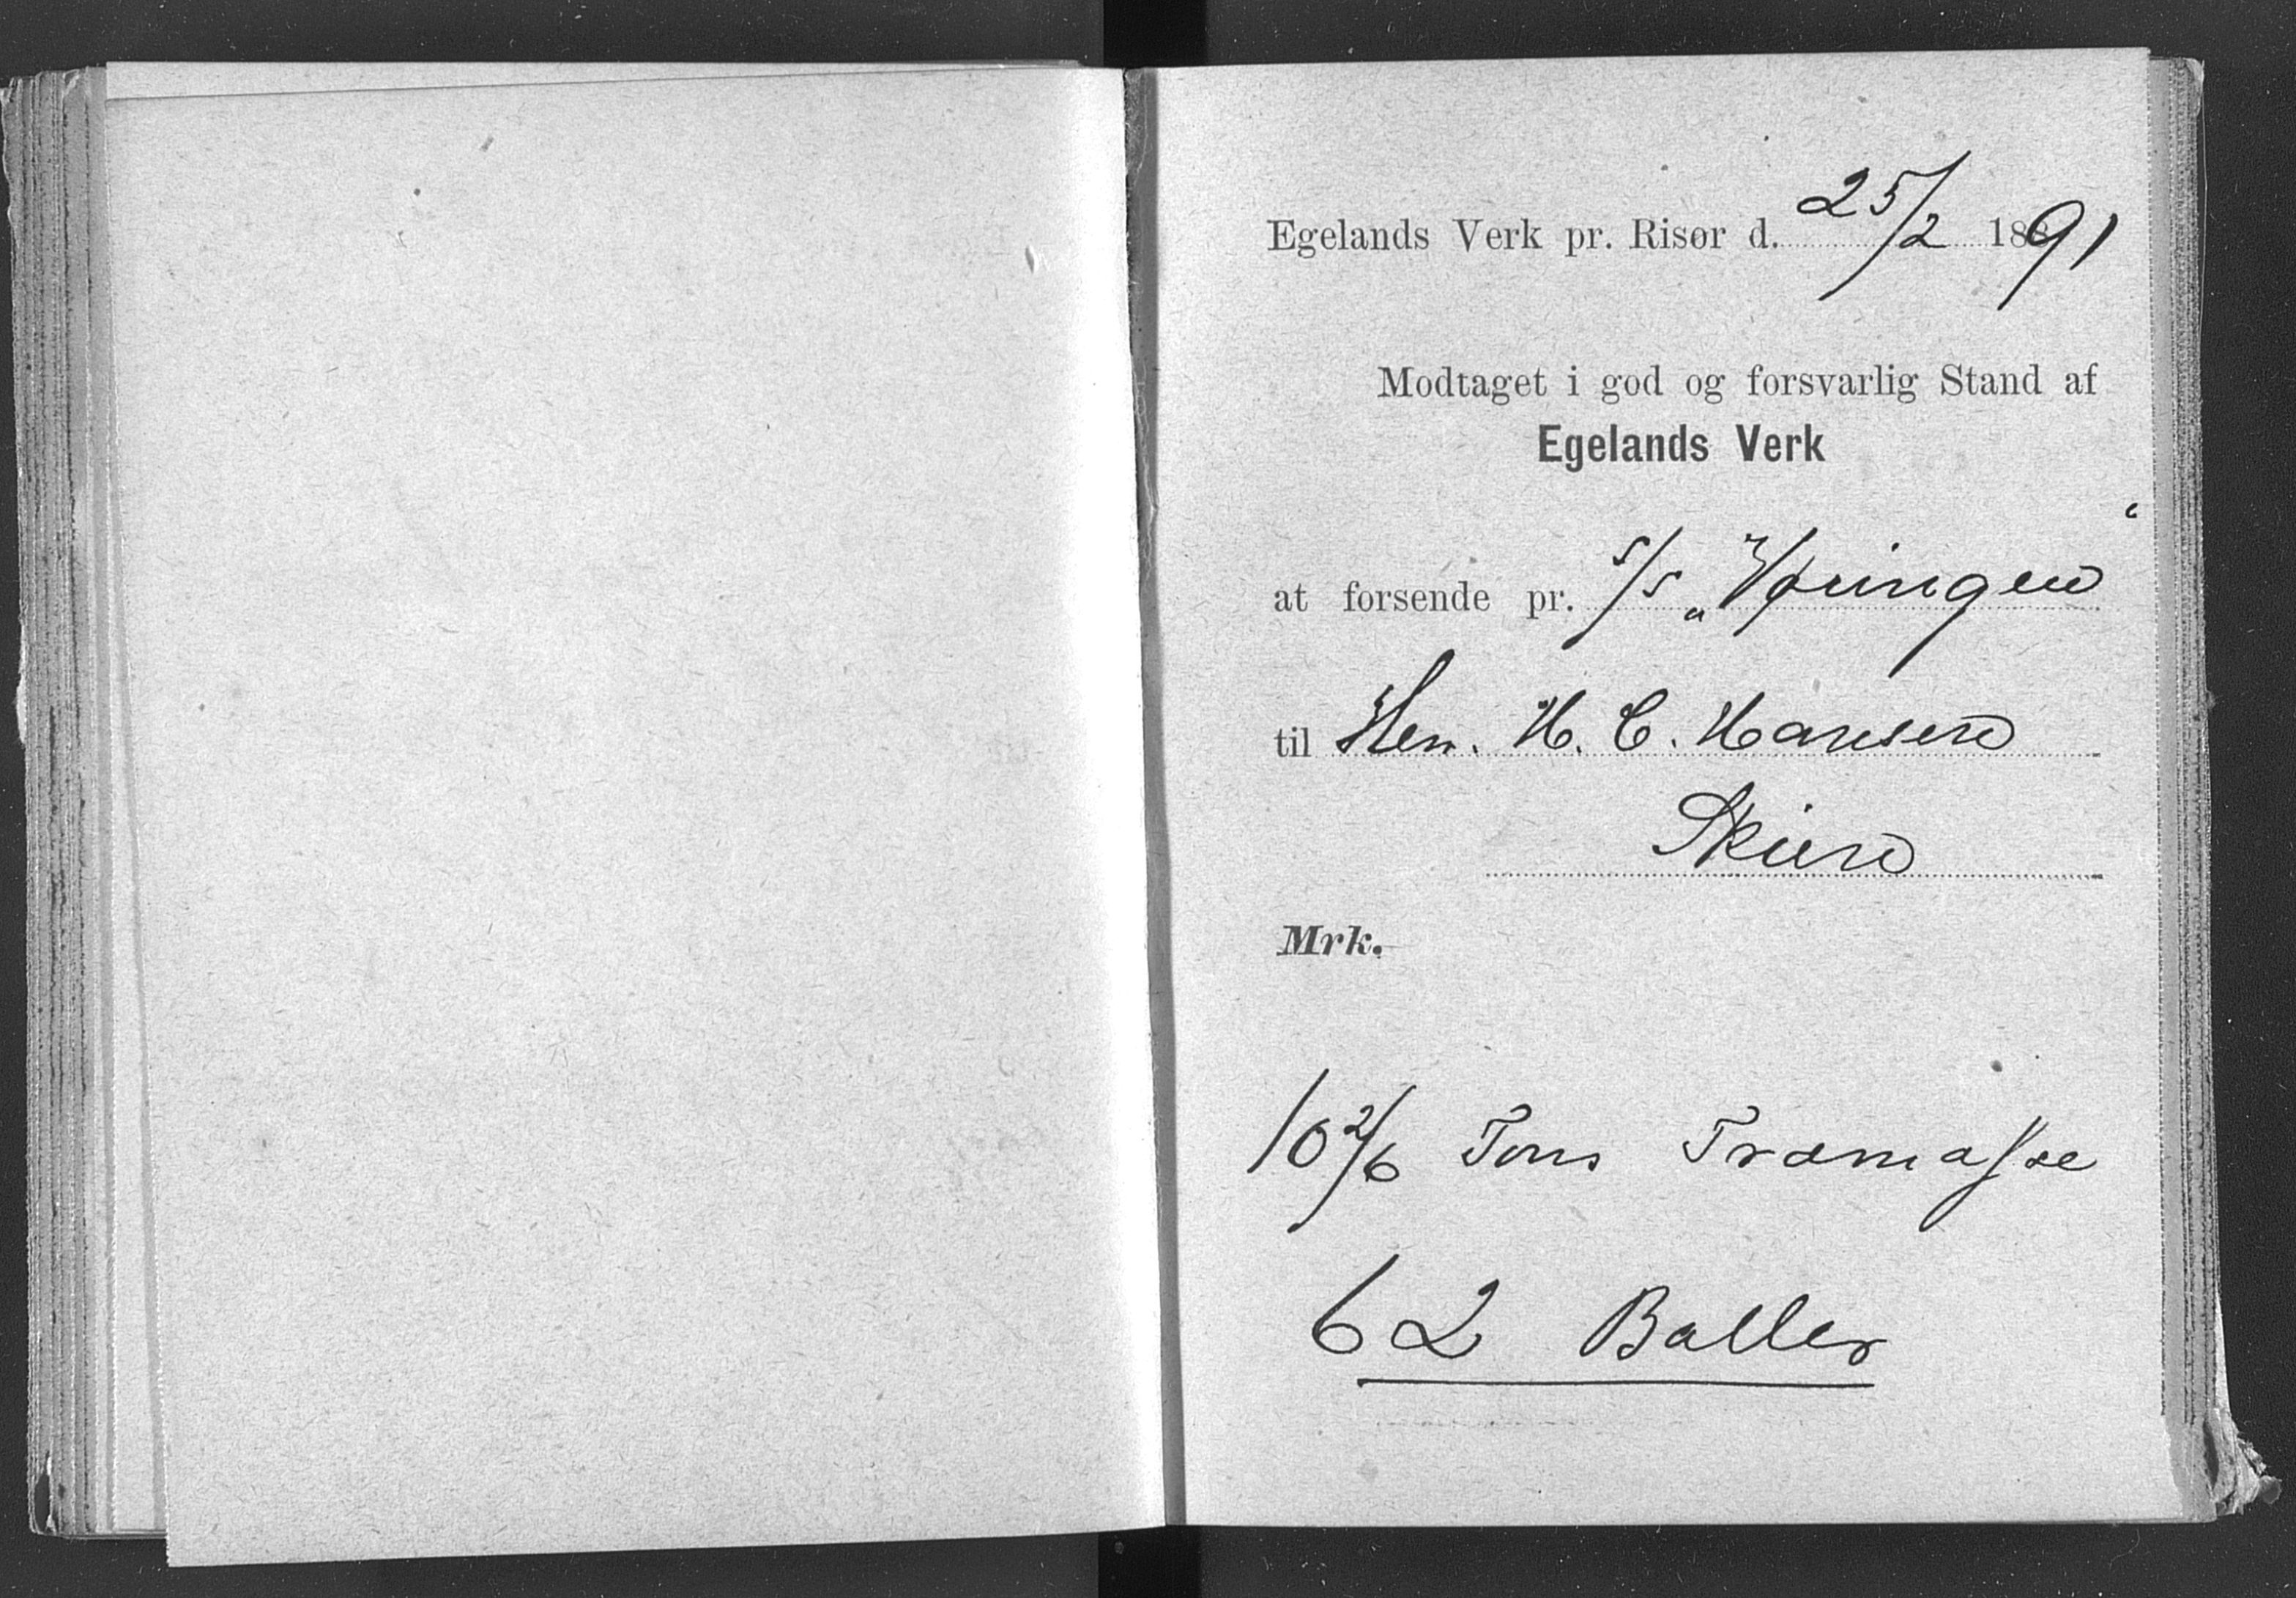 Egelands Verk pr. Risør d. 25/2 1891
Modtaget i god og forsvarlig Stand af
Egelands Verk
at forsende pr. S/S „
til Herr. H. C. Hansen
Skien
Mrk.
10 2/6 Tons Træmasse
62 Baller